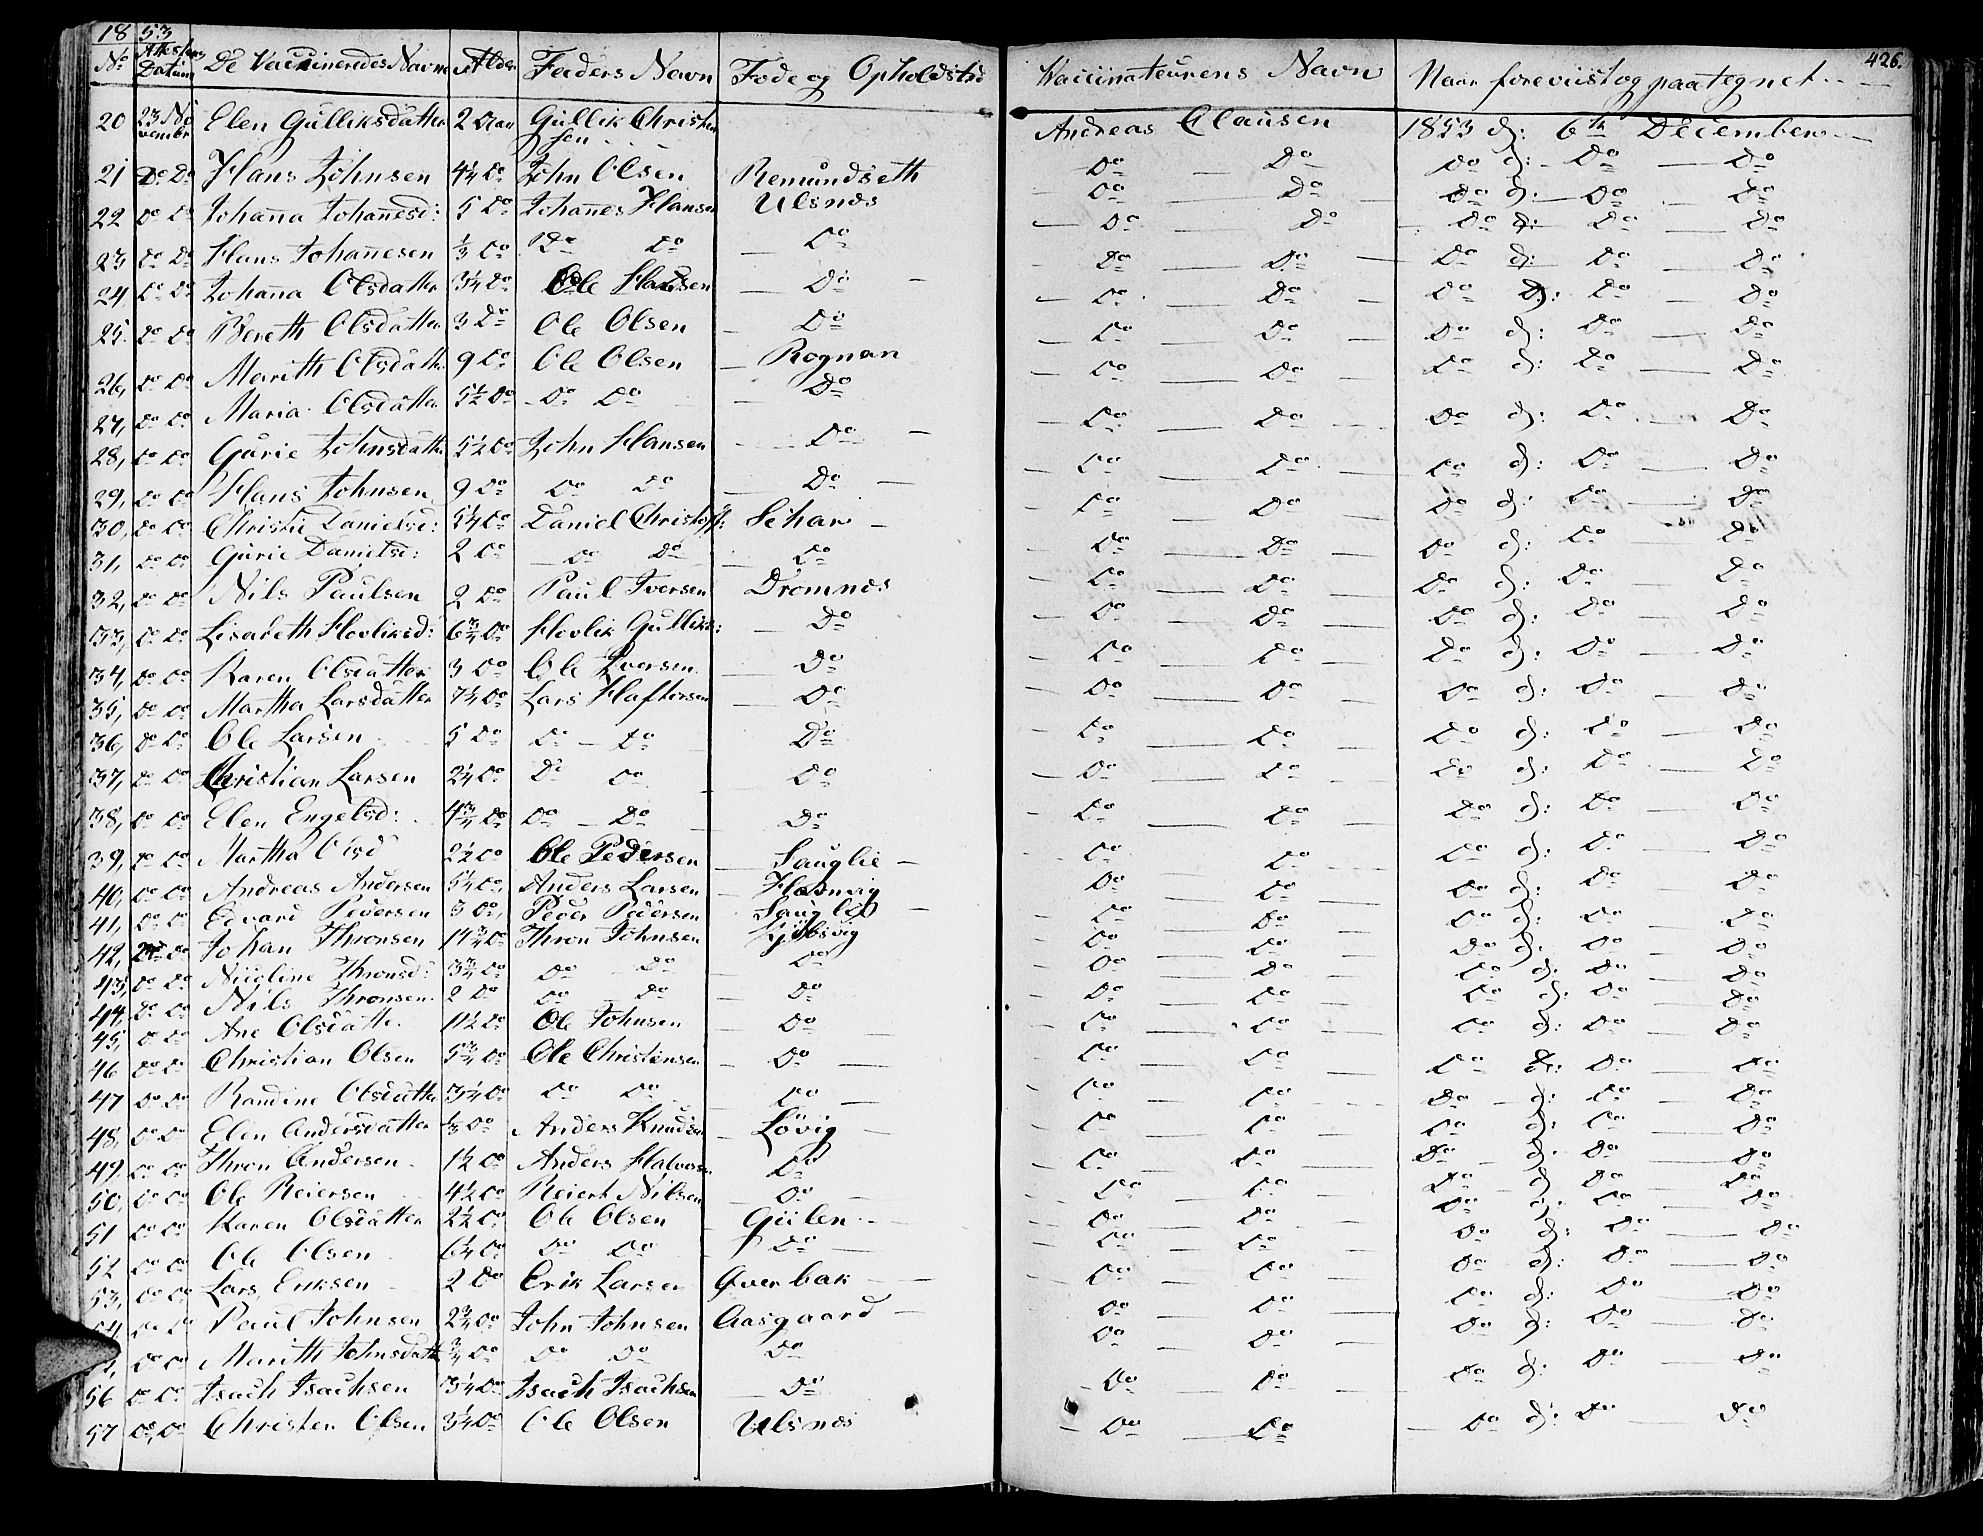 18 53 426.
No Attestens Datum De Vaccineredes Navne Alder Faders Navn Føde og Opholdstæd Vaccinateurens Navn Naar foreviist og paategnet
20 23 No vembr Elen Gulliksdatter 2 Aar Gullik Christen sen Andreas Clausen 1853 d: 6te December
21 Do Do Hans Johnsen 4¼ Do John Olsen Remundseth Do Do Do d: Do Do
22 Do Do Johanna Johanesd: 5 Do Johannes Hansen Ulsnæs Do Do Do d: Do Do
23 Do Do Hans Johanesen ⅓ Do Do Do Do Do Do Do d: Do Do
24 Do Do Johana Olsdatter 3¼ Do Ole Hansen Do Do Do Do d: Do Do
25. Do Do Bereth Olsdatter 3 Do Ole Olsen Do Do Do Do d: Do Do
26, Do Do Marith Olsdatter 9 Do Ole Olsen Rognan Do Do Do d: Do Do
27, Do Do Maria Olsdatter 5½ Do Do Do Do Do Do Do d: Do Do
28, Do Do Gurie Johnsdatter 5½ Do John Hansen Do Do Do Do d: Do Do
29, Do Do Hans Johnsen 9 Do Do Do Do Do Do Do d: Do Do
30, Do Do Christie Danielsd: 5¼ Do Daniel Christoff: Schar Do Do Do d: Do Do
31, Do Do Gurie Danielsd: 2 Do Do Do Do Do Do Do d: Do Do
32, Do Do Nils Paulsen 2 Do Paul Iversen Dromnes Do Do Do d: Do Do
33, Do Do Lisabeth Hovliksd: 6¾ Do Hovlik Gulliks: Do Do Do Do d: Do Do
34, Do Do Karen Olsdatter 3 Do Ole Iversen Do Do Do Do d: Do Do
35, Do Do Martha Larsdatter 7½ Do Lars Haftorsen Do Do Do Do d: Do Do
36, Do Do Ole Larsen 5 Do Do Do Do Do Do Do d: Do Do
37, Do Do Christian Larsen 2¼ Do Do Do Do Do Do Do d: Do Do
38, Do Do Elen Engelsd: 4¾ Do Do Do Do Do Do Do d: Do Do
39, Do Do Martha Olsd 2½ Do Ole Pedersen Sauglie Do Do Do d: Do Do
40, Do Do Andreas Andersen 5¼ Do Anders Larsen Do Do Do d: Do Do
41, Do Do Edvard Pedersen 3 Do, Peder Pedersen Sauglie Do Do Do d: Do Do
42, Do Do Johan Thronsen 14¾ Do Thron Johnsen Do Do Do d: Do Do
43, Do Do Nicoline Thronsd: 3¾ Do Do Do Do Do Do Do d: Do Do
44, Do Do Nils Thronsen 2 Do Do Do Do Do Do Do d: Do Do
45, Do Do Ane Olsdatte. 11½ Do Ole Johnsen Do Do Do Do d: Do Do
46 Do Do Christian Olsen 5¾ Do Ole Christensen Do Do Do Do d: Do Do
47 Do Do Randine Olsdatter 3¼ Do Do Do Do Do Do Do d: Do Do
48, Do Do Elen Andersdatter ⅓ Do Anders Knudsen Løvig Do Do Do d: Do Do
49. Do Do Thron Andersen 1½ Do Anders Halvors: Do Do Do Do d: Do Do
50, Do Do Ole Reiersen 4½ Do Reiert Nilsen Do Do Do Do d: Do Do
51 Do Do Karen Olsdatter 2½ Do Ole Olsen Gülen Do Do Do d: Do Do
52 Do Do Ole Olsen 6¼ Do Do Do Do Do Do Do d: Do Do
53, Do Do Lars, Eriksen 2 Do Erik Larsen Øverbak Do Do Do d: Do Do
54, Do Do Paul Johnsen 2¾ Do John Johnsen Aasgaard Do Do Do d: Do Do
5, Do Do Marith Johnsdatter ¾ Do Do Do Do Do Do Do d: Do Do
56 Do Do Isach Isachsen 3¼ Do Isach Isachsen Do Do Do Do d: Do Do
57 Do, Do Christen Olsen 3¼ Do Ole Olsen Ulsnæs Do Do Do d: Do Do